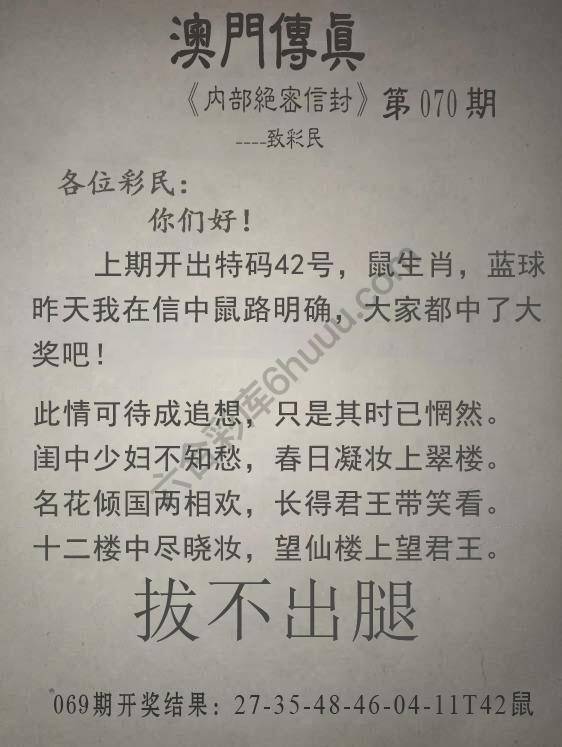 澳門傳眞
《内部絕密信封》第070期
----致彩民
各位彩民：
你们好！
上期开出特码42号，鼠生肖，蓝球
昨天我在信中鼠路明确，大家都中了大
奖吧！
此情可待成追想，只是其时已惘然。
闺中少妇不知愁，春日凝妆上翠楼。
名花倾国两相欢，长得君王带笑看。
十二楼中尽晓妆，望仙楼上望君王。
拔不出腿
069期开奖结果：27-35-48-46-04-11T42鼠
六合彩库6huuu.com